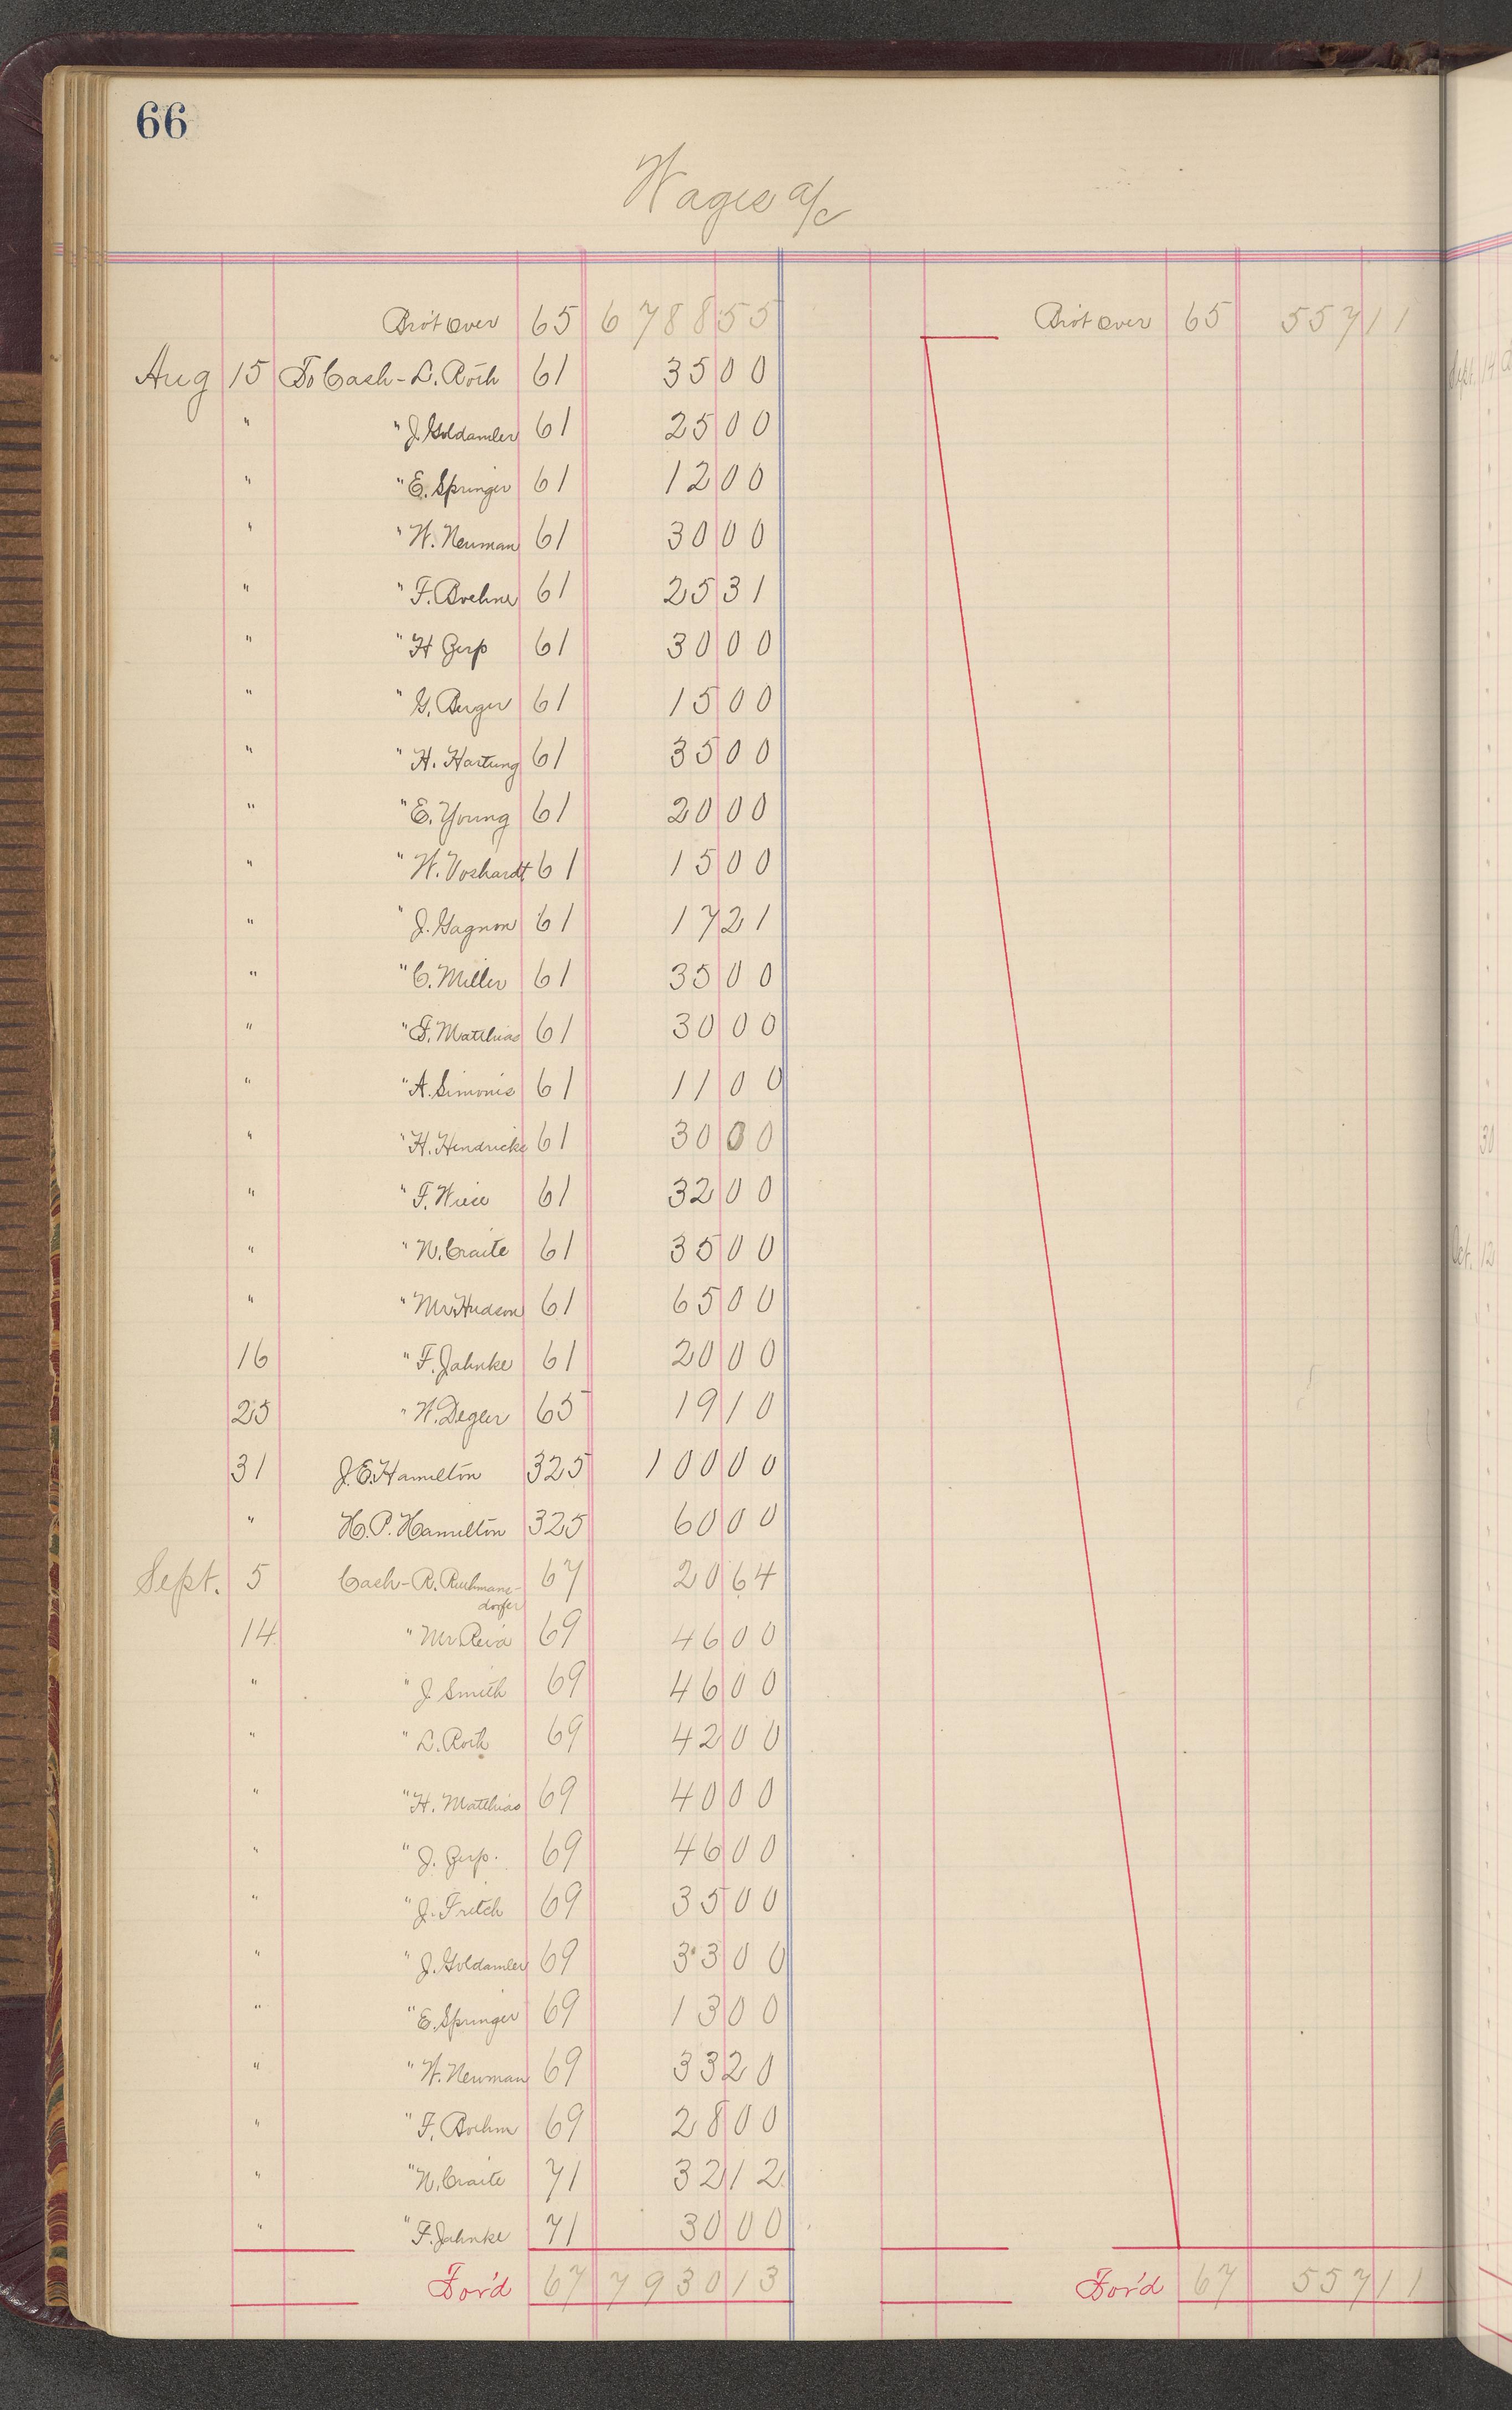 66
Wages a/c
Bro't over 65 6 788 55 Bro't over 65 557 11
Aug 15 To Cash - L. Roth 61 35 00
" " J. Goldamler 61 25 00
" " E. Springer 61 12 00
" " W. Neuman 61 30 00
" " F. Boehne 61 25 31
" " H Gerp 61 30 00
" " G. Berger 61 15 00
" " H. Hartung 61 35 00
" " E. Young 61 20 00
" " W. Voshardt 61 15 00
" " J. Gagnon 61 17 21
" " C. Miller 61 35 00
" " F. Matthias 61 30 00
" " A. Simonis 61 11 00
" " H. Hendricks 61 30 00
" " F. Wiese 61 32 00
" " N. Craite 61 35 00
" " Mr. Hudson 61 65 00
16 " F. Jahnke 61 20 00
25 " W. Degler 65 19 10
31 J. E. Hamilton 325 100 00
" H. P. Hamilton 325 60 00
Sept. 5 Cash - R. Ruchmans- 67 20 64
dorfer
14 " Mr Reid 69 46 00
" " J Smith 69 46 00
" " L. Roth 69 42 00
" " H. Matthias 69 40 00
" " J. Gerp. 69 46 00
" " J. Fritch 69 35 00
" " J. Goldamler 69 33 00
" " E. Springer 69 13 00
" " W. Neuman 69 33 20
" " F. Boehm 69 28 00
" " N. Craite 71 32 12
" " F. Jahnke 71 30 00
For'd 67 7 930 13 For'd 67 557 11
Sept. 14
30
Oct. 12